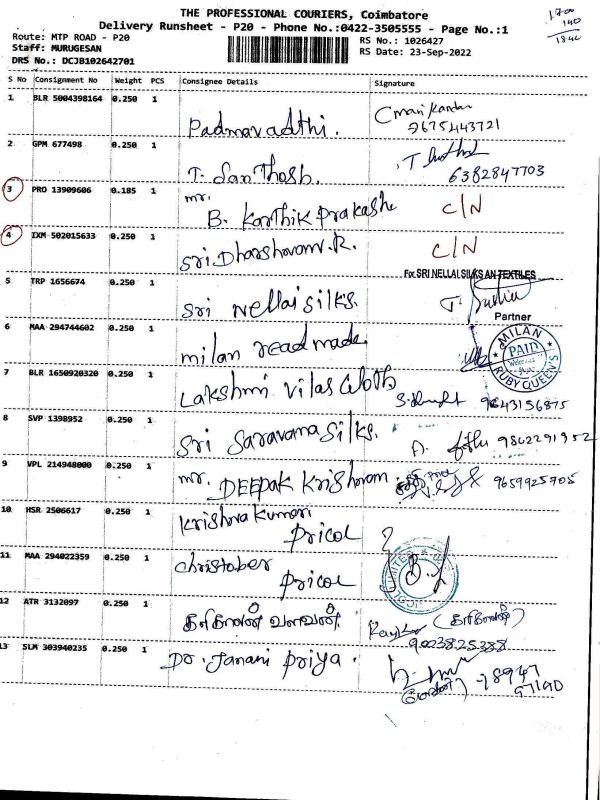 THE PROFESSIONAL COURIERS, Coimbatore
Delivery Runsheet - P20 - Phone No.:0422-3505555 - Page No.:1
1700
140
1840
Route: MTP ROAD - P20
Staff: MURUGESAN
DRS No.: DCJB102642701
RS No.: 1026427
RS Date: 23-Sep-2022
S No Consignment No Weight PCS Consignee Details Signature
1 BLR 5004398164 0.250 1 Padmavadthi. 9675443721
2 GPM 677498 0.250 1 T. SanThosh. 6382847703
3 PRO 13909606 0.185 1 mr. B. Karthik prakashe C/N
4 IXM 502015633 0.250 1 Sri.Dharshwam.R. C/N
5 TRP 1656674 0.250 1 Sri Nellai silks.
For SRI NELLAI SILKS AN TEXTILES
Partner
6 MAA 294744602 0.250 1 milan readmade
MILAN PAID RUBY QUEEN'S
7 BLR 1650920320 0.250 1 Lakshmi vilas cloth 9843156875
8 SVP 1398952 0.250 1 Sri Saravana Silks. 9802291952
9 VPL 214948000 0.250 1 mr. DEEPAK Krishnam 9659925705
10 HSR 2506617 0.250 1 Krishna kumari Pricol
11 MAA 294022359 0.250 1 christober Pricol
12 ATR 3132097 0.250 1 கரிகாலன் வளவன் (கரிகாலன்) 9003825388
13 SLM 303940235 0.250 1 Dr. Janani Priya. 78947 97190